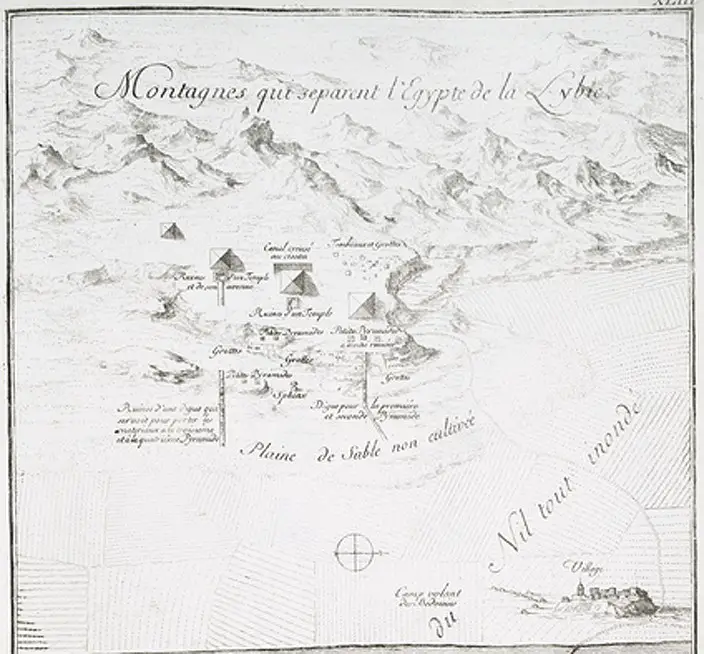 XLIII
Montagnes qui separent l'Egypte de la Lybie.
Canal creusé
au ciseau
Tombeaux et Grottes
Ruines d'un Temple
et de son avenue
Ruines d'un Temple
Petites Pyramides
Petites Pyramides
à demi ruinées
Grottes
Grottes
Petites Pyramides
Grottes
Sphinx
Digue pour la premiere
et seconde Pyramide
Ruines d'une digue qui
servoit pour porter les
materiaux a la troisieme
et a la quatrieme Pyramide
Plaine de Sable non cultivée
Nil tout inondé
Village
Camp volant
des Bedouins
du